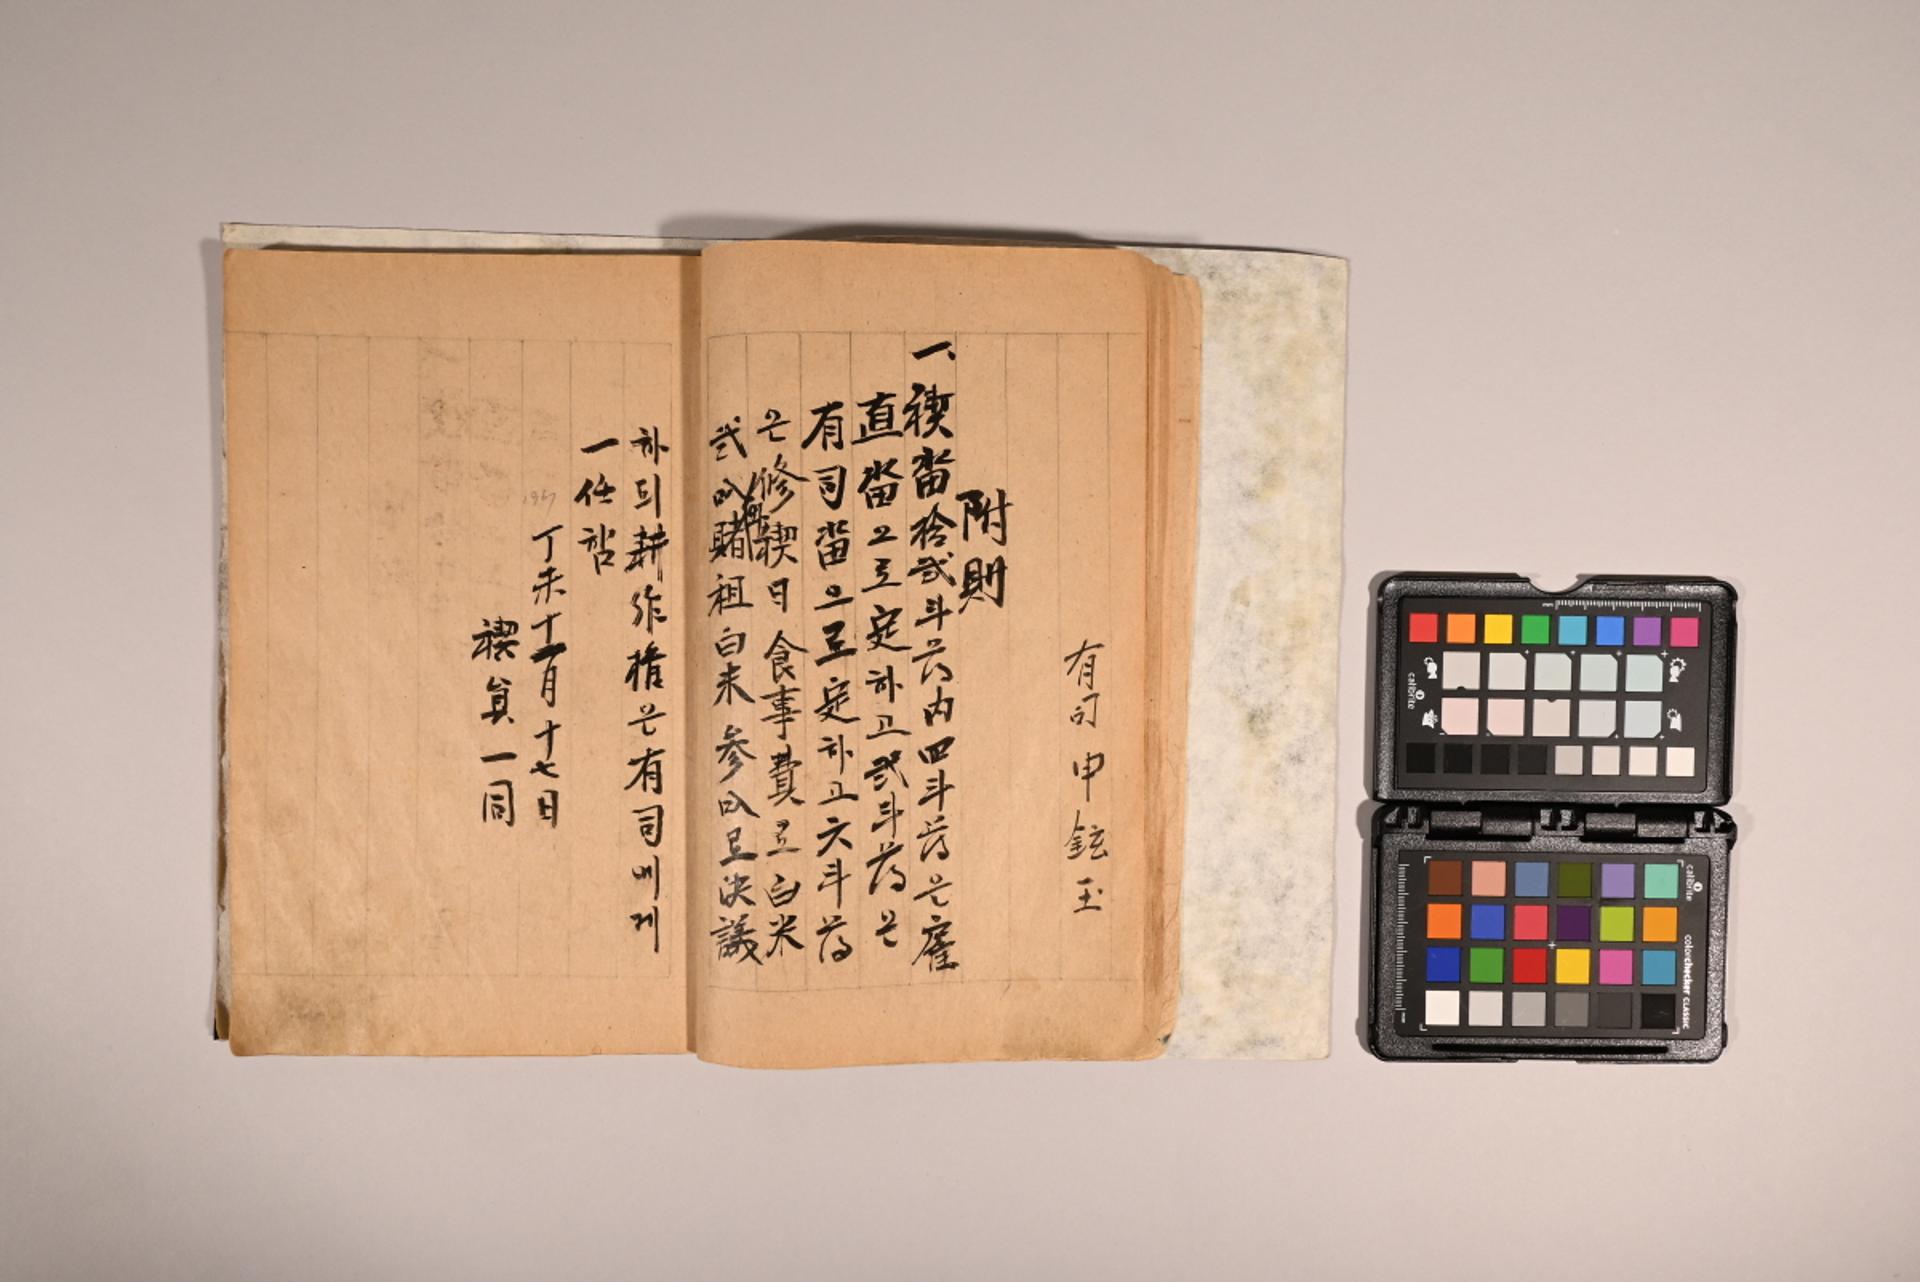 有司 申鉉玉
附則
一、禊畓拾弍斗落内四斗落은雇
直畓으로定하고弍斗落은
有司畓으로定하고六斗落
은修禊日食事費로白米
弍叺賭租白米参叺로决議
하되耕作権은有司에게
一任함
丁未十一月十七日
禊員一同
calibrite
calibrite
colorchecker CLASSIC